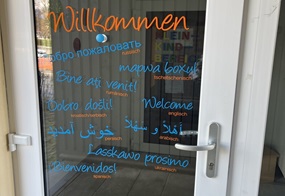 Willkommen
добро пожаловать
russisch
марша вогӏуб
tschetschenisch
Bine ați venit!
rumänisch
Dobro došli!
Welcome
englisch
خوش آمدید
اهلا و سهلا
arabisch
Lasskawo prosimo
ukrainisch
¡Bienvenidos!
spanisch